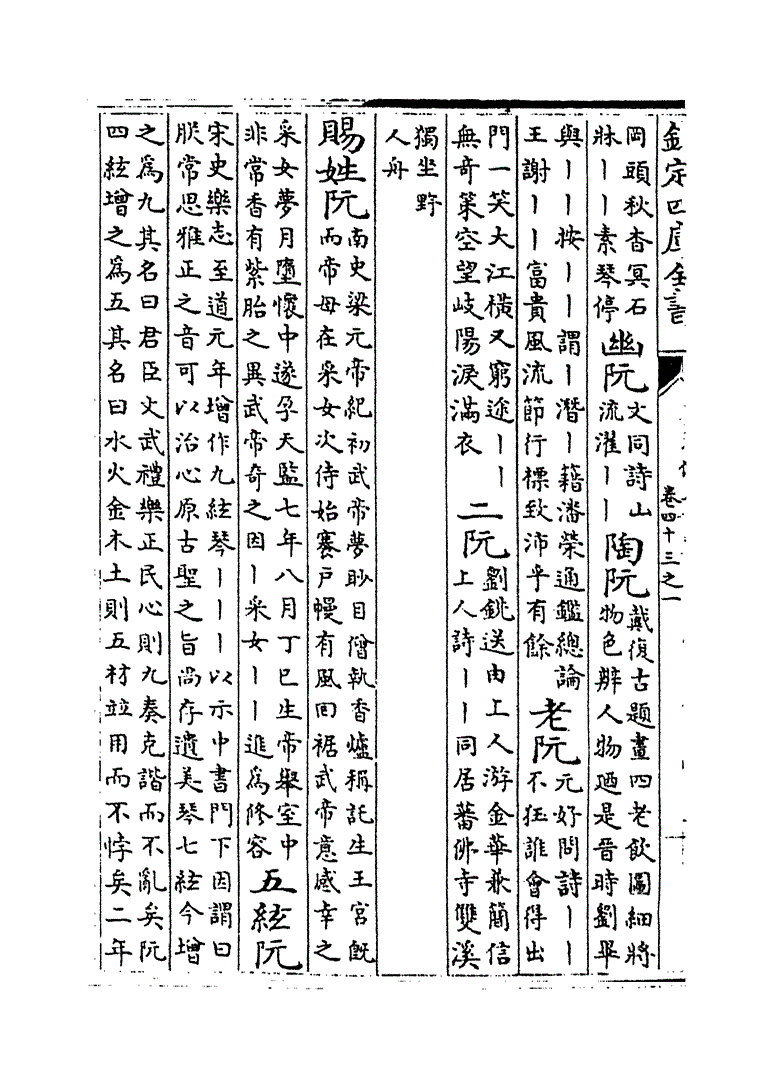 欽定四庫全書
卷四十三之一
岡頭秋杳冥石
牀丨丨素琴停
幽阮
文同詩山
流濯丨丨
陶阮
戴復古題畫四老飲圖細將
物色辨人物廼是晉時劉畢
與丨丨按丨丨謂丨潛丨籍潘榮通鑑總論
王謝丨丨富貴風流節行標致沛乎有餘
老阮
元好問詩丨丨
不狂誰會得出
門一笑大江橫又窮途丨丨
無奇策空望岐陽淚滿衣
二阮
劉銑送由上人游金華兼簡信
上人詩丨丨同居蕃佛寺雙溪
獨坐野
人舟
賜姓阮
南史梁元帝紀初武帝夢眇目僧執香爐稱託生王宮既
而帝母在采女次侍始褰戶幔有風回裾武帝意感幸之
采女夢月墮懷中遂孕天監七年八月丁巳生帝舉室中
非常香有紫胎之異武帝奇之因丨采女丨丨進為修容
五絃阮
宋史樂志至道元年增作九絃琴丨丨丨以示中書門下因謂曰
朕常思雅正之音可以治心原古聖之旨尚存遺美琴七絃今增
之為九其名曰君臣文武禮樂正民心則九奏克諧而不亂矣阮
四絃增之為五其名曰水火金木土則五材竝用而不悖矣二年